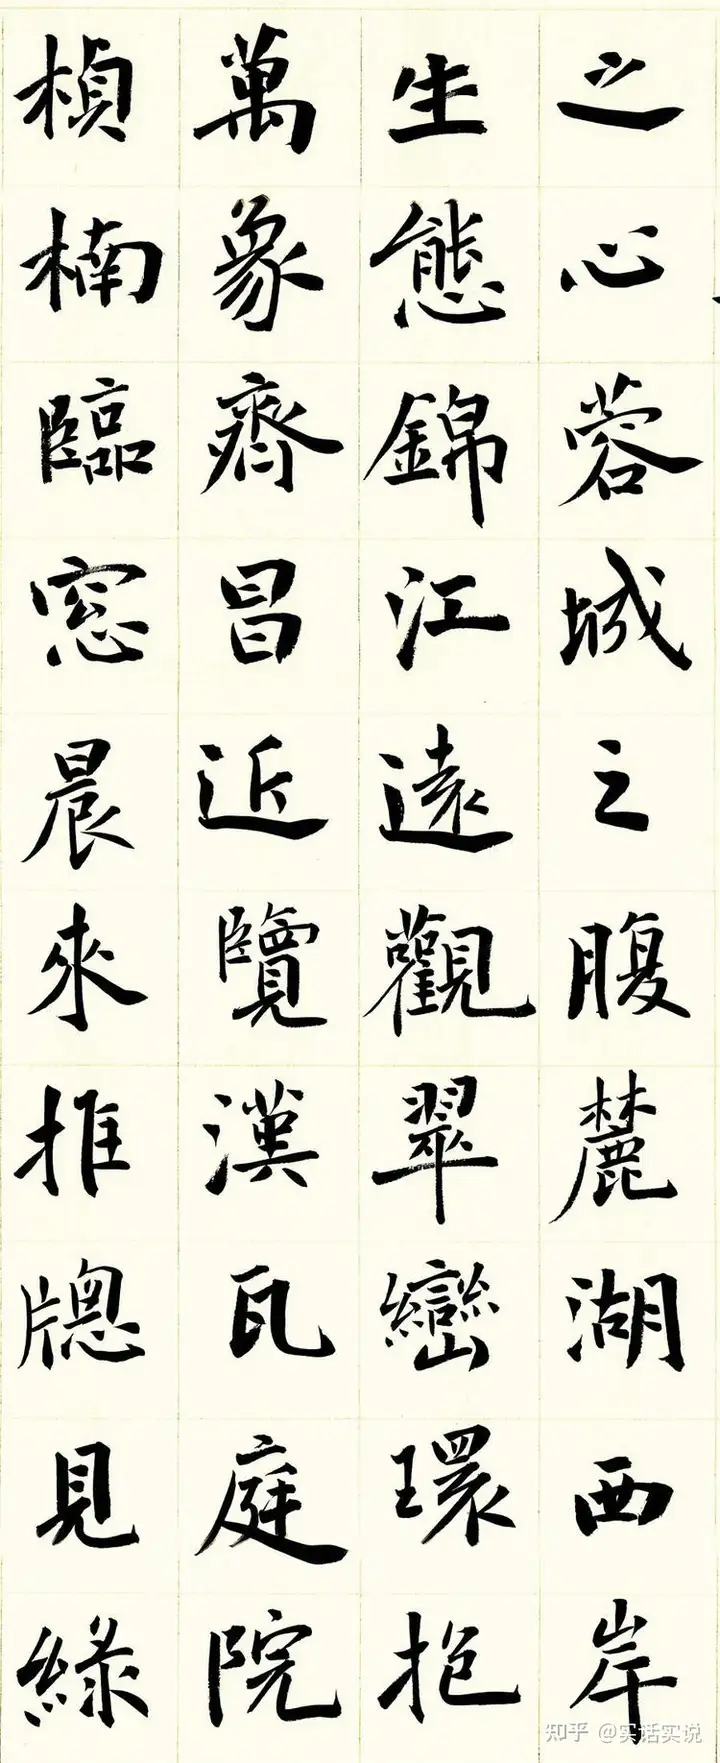 之心蓉城之腹麓湖西岸
生態錦江遠觀翠巒環抱
萬象齊昌近覽漢瓦庭院
楨楠臨窓晨來推牕見綠
知乎 @实话实说